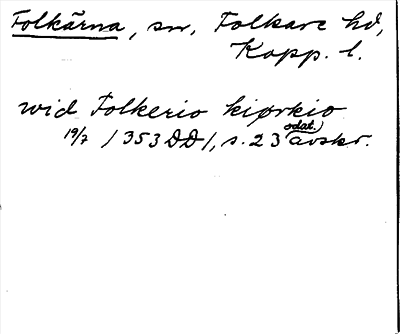 Folkärna, sn, Folkare hd,
Kopp. l.
wid Folkerio kiørkio
19/7 1353 DD 1, s. 23 odat. avskr.